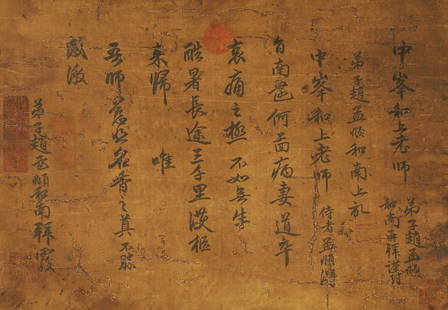 中峯和上老师
弟子趙孟頫
和南再拜謹封
弟子趙孟頫和南上記
中峯和上老师
侍者孟頫
自南還何面病妻道卒
哀痛之極不如無生
酷暑長途三千里護柩
來歸 唯
吾师
感激
弟子趙孟頫和南拜覆